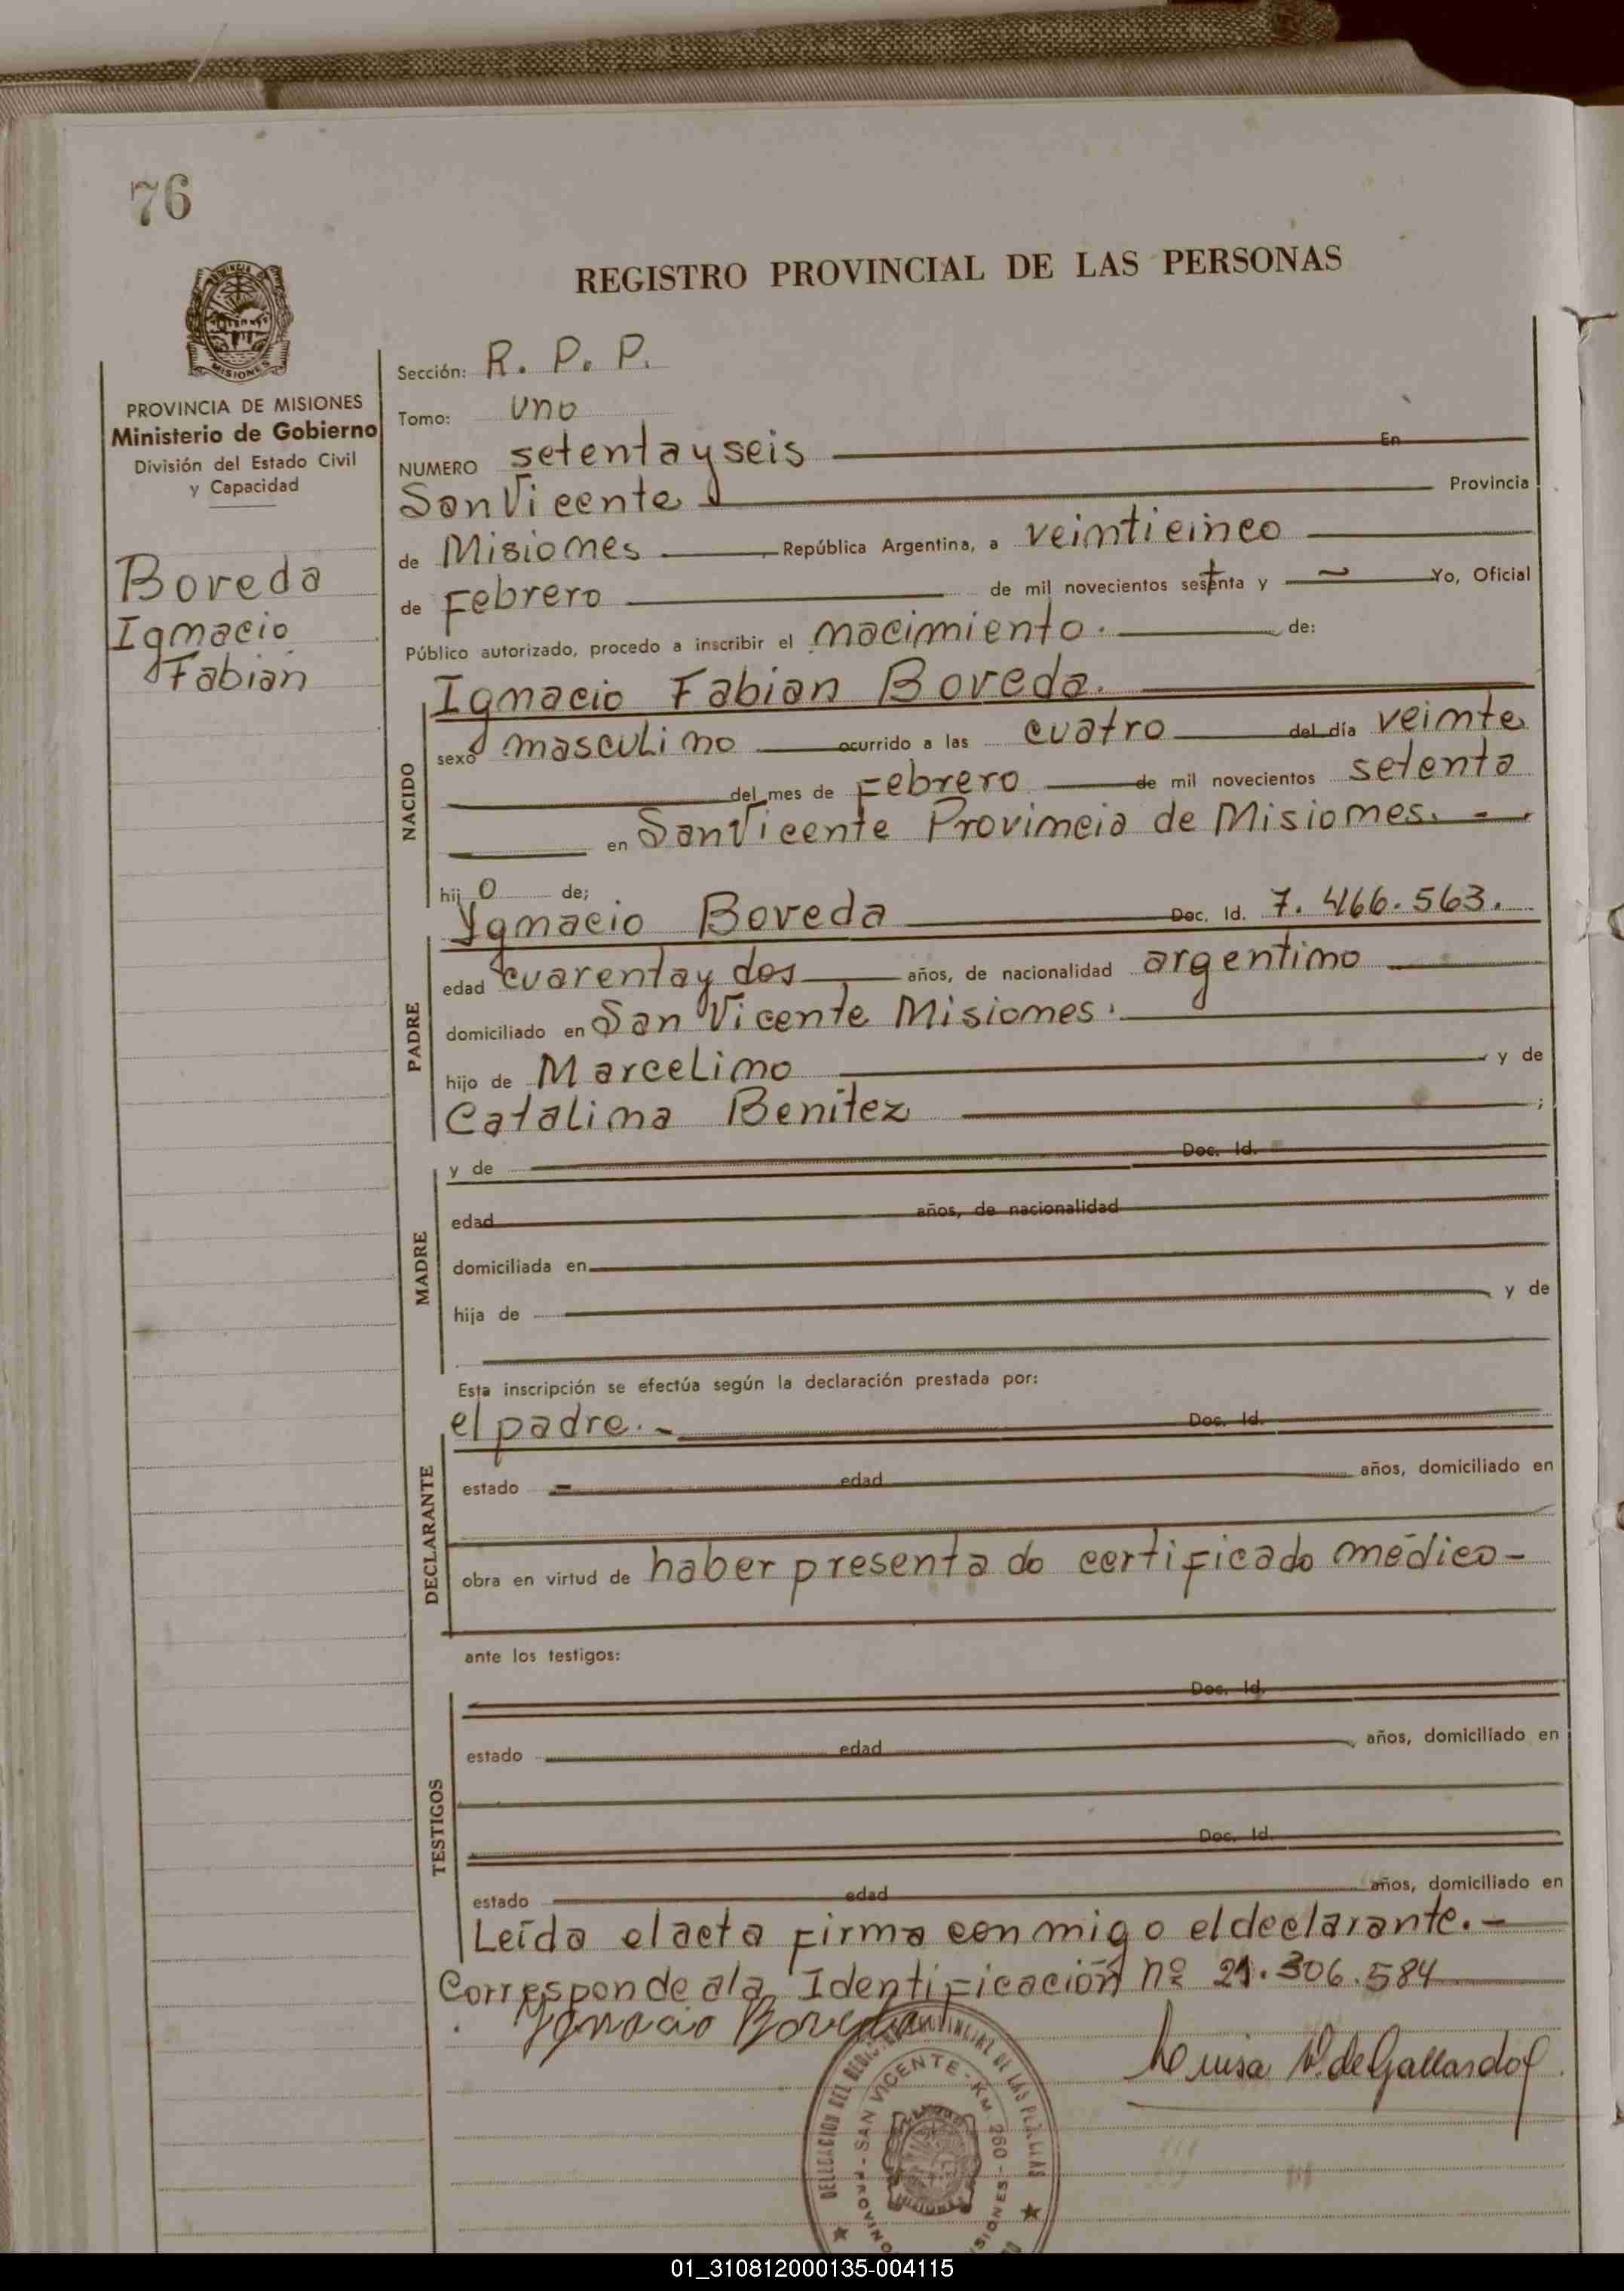 76
REGISTRO PROVINCIAL DE LAS PERSONAS
MISIONES
PROVINCIA DE MISIONES
Ministerio de Gobierno
División del Estado Civil
y Capacidad
Boveda
Ignacio
Fabian
Sección: R. P. P.
Tomo: uno
NUMERO setenta y seis En
San Vicente Provincia
de Misiones, República Argentina, a veinticinco
de Febrero de mil novecientos setenta y Yo, Oficial
Público autorizado, procedo a inscribir el nacimiento. de:
NACIDO
Ignacio Fabian Boveda.
sexo masculino ocurrido a las cuatro del día veinte
del mes de Febrero de mil novecientos setenta
en San Vicente Provincia de Misiones. -
hijo de;
PADRE
Ygnacio Boveda Doc. Id. 7.466.563.
edad cuarenta y dos años, de nacionalidad argentino
domiciliado en San Vicente Misiones.
hijo de Marcelino y de
Catalina Benitez ;
MADRE
y de Doc. Id.
edad años, de nacionalidad
domiciliada en
hija de y de
Esta inscripción se efectúa según la declaración prestada por:
DECLARANTE
el padre. - Doc. Id.
estado - edad años, domiciliado en
obra en virtud de haber presentado certificado médico -
ante los testigos:
TESTIGOS
Doc. Id.
estado edad años, domiciliado en
Doc. Id.
estado edad años, domiciliado en
Leída el acta firma conmigo el declarante. -
Corresponde a la Identificación nº 21.306.584
Ygnacio Boveda
Luisa V. de Gallardo
DELEGACION DEL REGISTRO PROVINCIAL DE LAS
SAN VICENTE - KM. 260 -
MISIONES
01_310812000135-004115